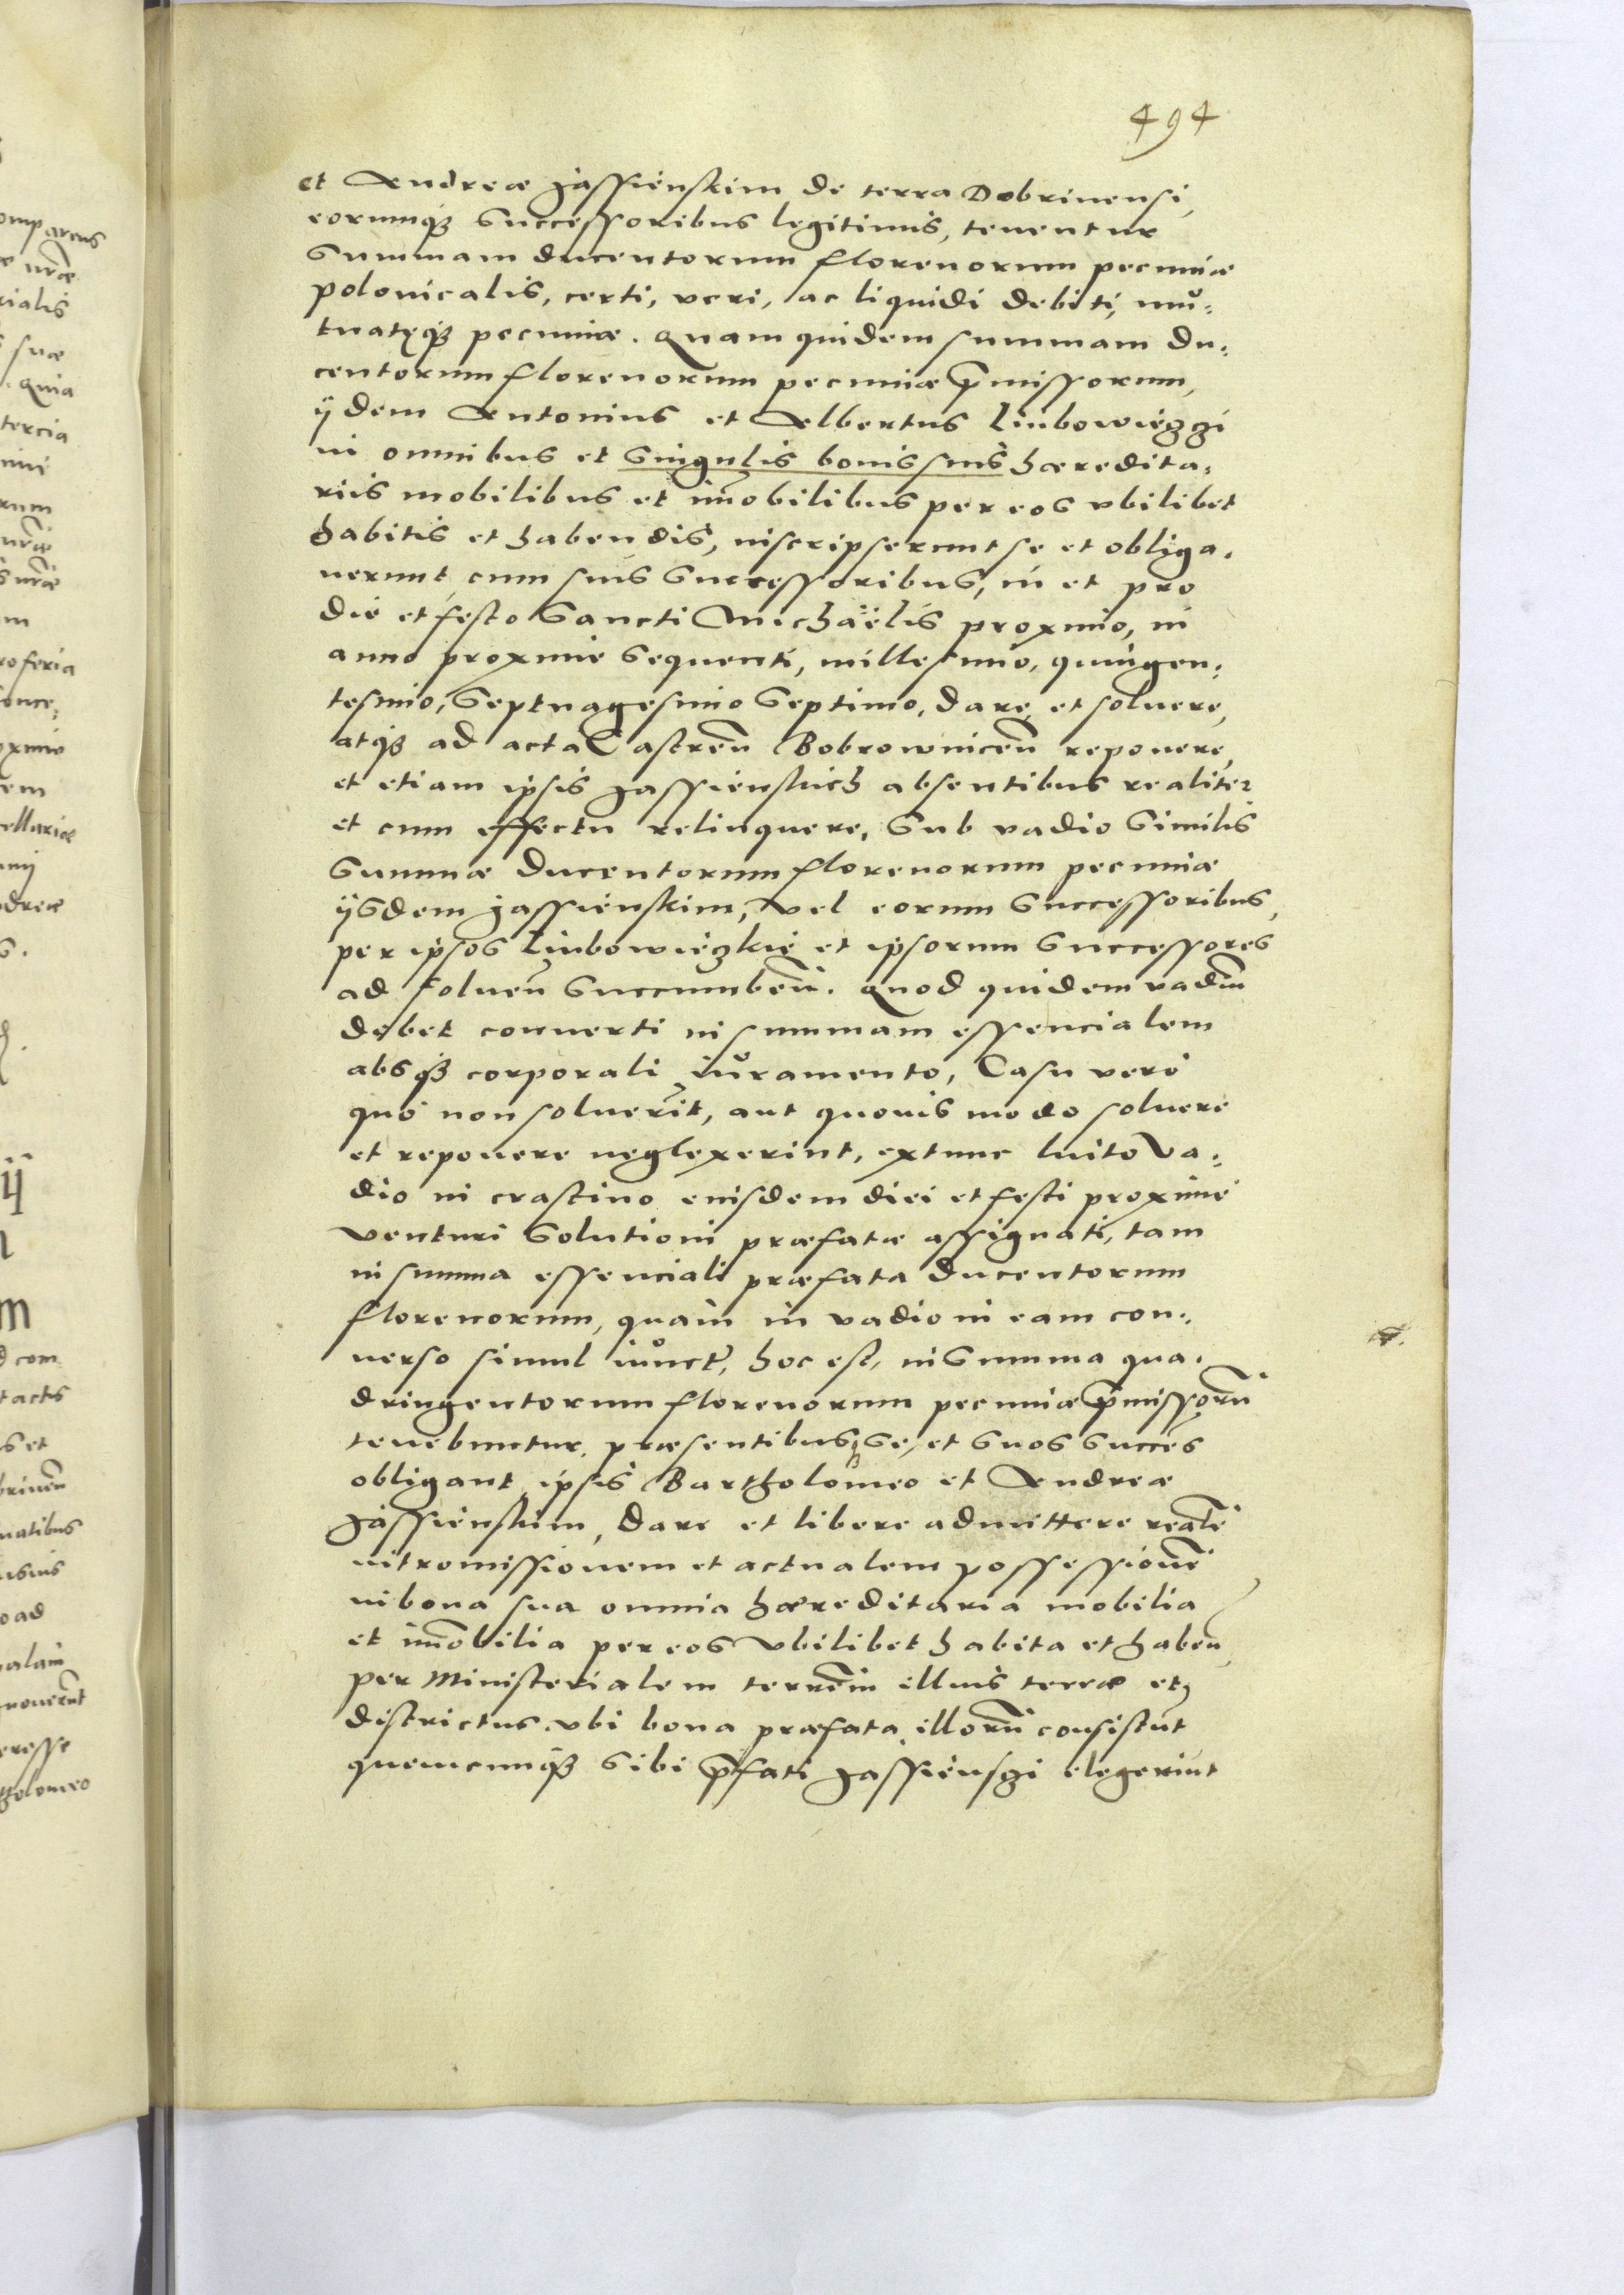 494
et Andreæ Jassienskim de terra Dobrinensi,
eorumq(ue) Successoribus legitimis, tenentur
Summam ducentorum florenorum pecuniæ
polonicalis, certi, veri, ac liquidi debiti, mu:
tuatęq(ue) pecuniæ. Quam quidem summam du:
centorum florenorum pecuniæ p̄missorum,
ijdem Antonius et Albertus Liubowięzzi
in omnibus et Singulis bonis suis hæredita:
riis mobilibus et im̄obilibus per eos vbilibet
habitis et habendis, inscripserunt se et obliga:
uerunt, cum suis Successoribus, in et pro
die et festo Sancti Michaëlis proximo, in
anno proxime Sequenti, millesimo, quingen:
tesimo, Septuagesimo Septimo, dare, et soluere,
atq(ue) ad acta Castren̄ Bobrownicen̄ reponere,
et etiam ipsis Jassienskich absentibus realiter
et cum effectu relinquere, Sub vadio Similis
Summæ Ducentorum florenorum pecuniæ
ijsdem Jassienskim, vel eorum Successoribus,
per ipsos Liubowięzkie et ipsorum Successores
ad soluen̄ Succumben̄. Quod quidem vadiū
debet conuerti in summam essencialem
absq(ue) corporali iuramento, Casu vero
quo non soluerit, aut quouis modo soluere
et reponere neglexerint, extunc luito va:
dio in crastino eiusdem diei et festi proxime
venturi Solutioni præfatæ assignati, tam
in summa essenciali præfata ducentorum
florenorum, quam in vadio in eam con:
uerso simul iunct., hoc est, in Summa qua:
dringentorum florenorum pecuniæ p̄missorū
tenebuntur, præsentibusq(ue) Se, et Suos Succes
obligant, ipsis Bartholomeo et Andreæ
Jassienskim, dare et libere admittere realē
intromissionem et actualem possessionē
in bona sua omnia hæreditaria mobilia
et im̄obilia per eos vbilibet habita et haben̄
per Ministerialem terrēm illius terræ et
districtus. vbi bona præfata illorū consistūt
quemcunq(ue) Sibi p̄fati Jassienszi elegerint